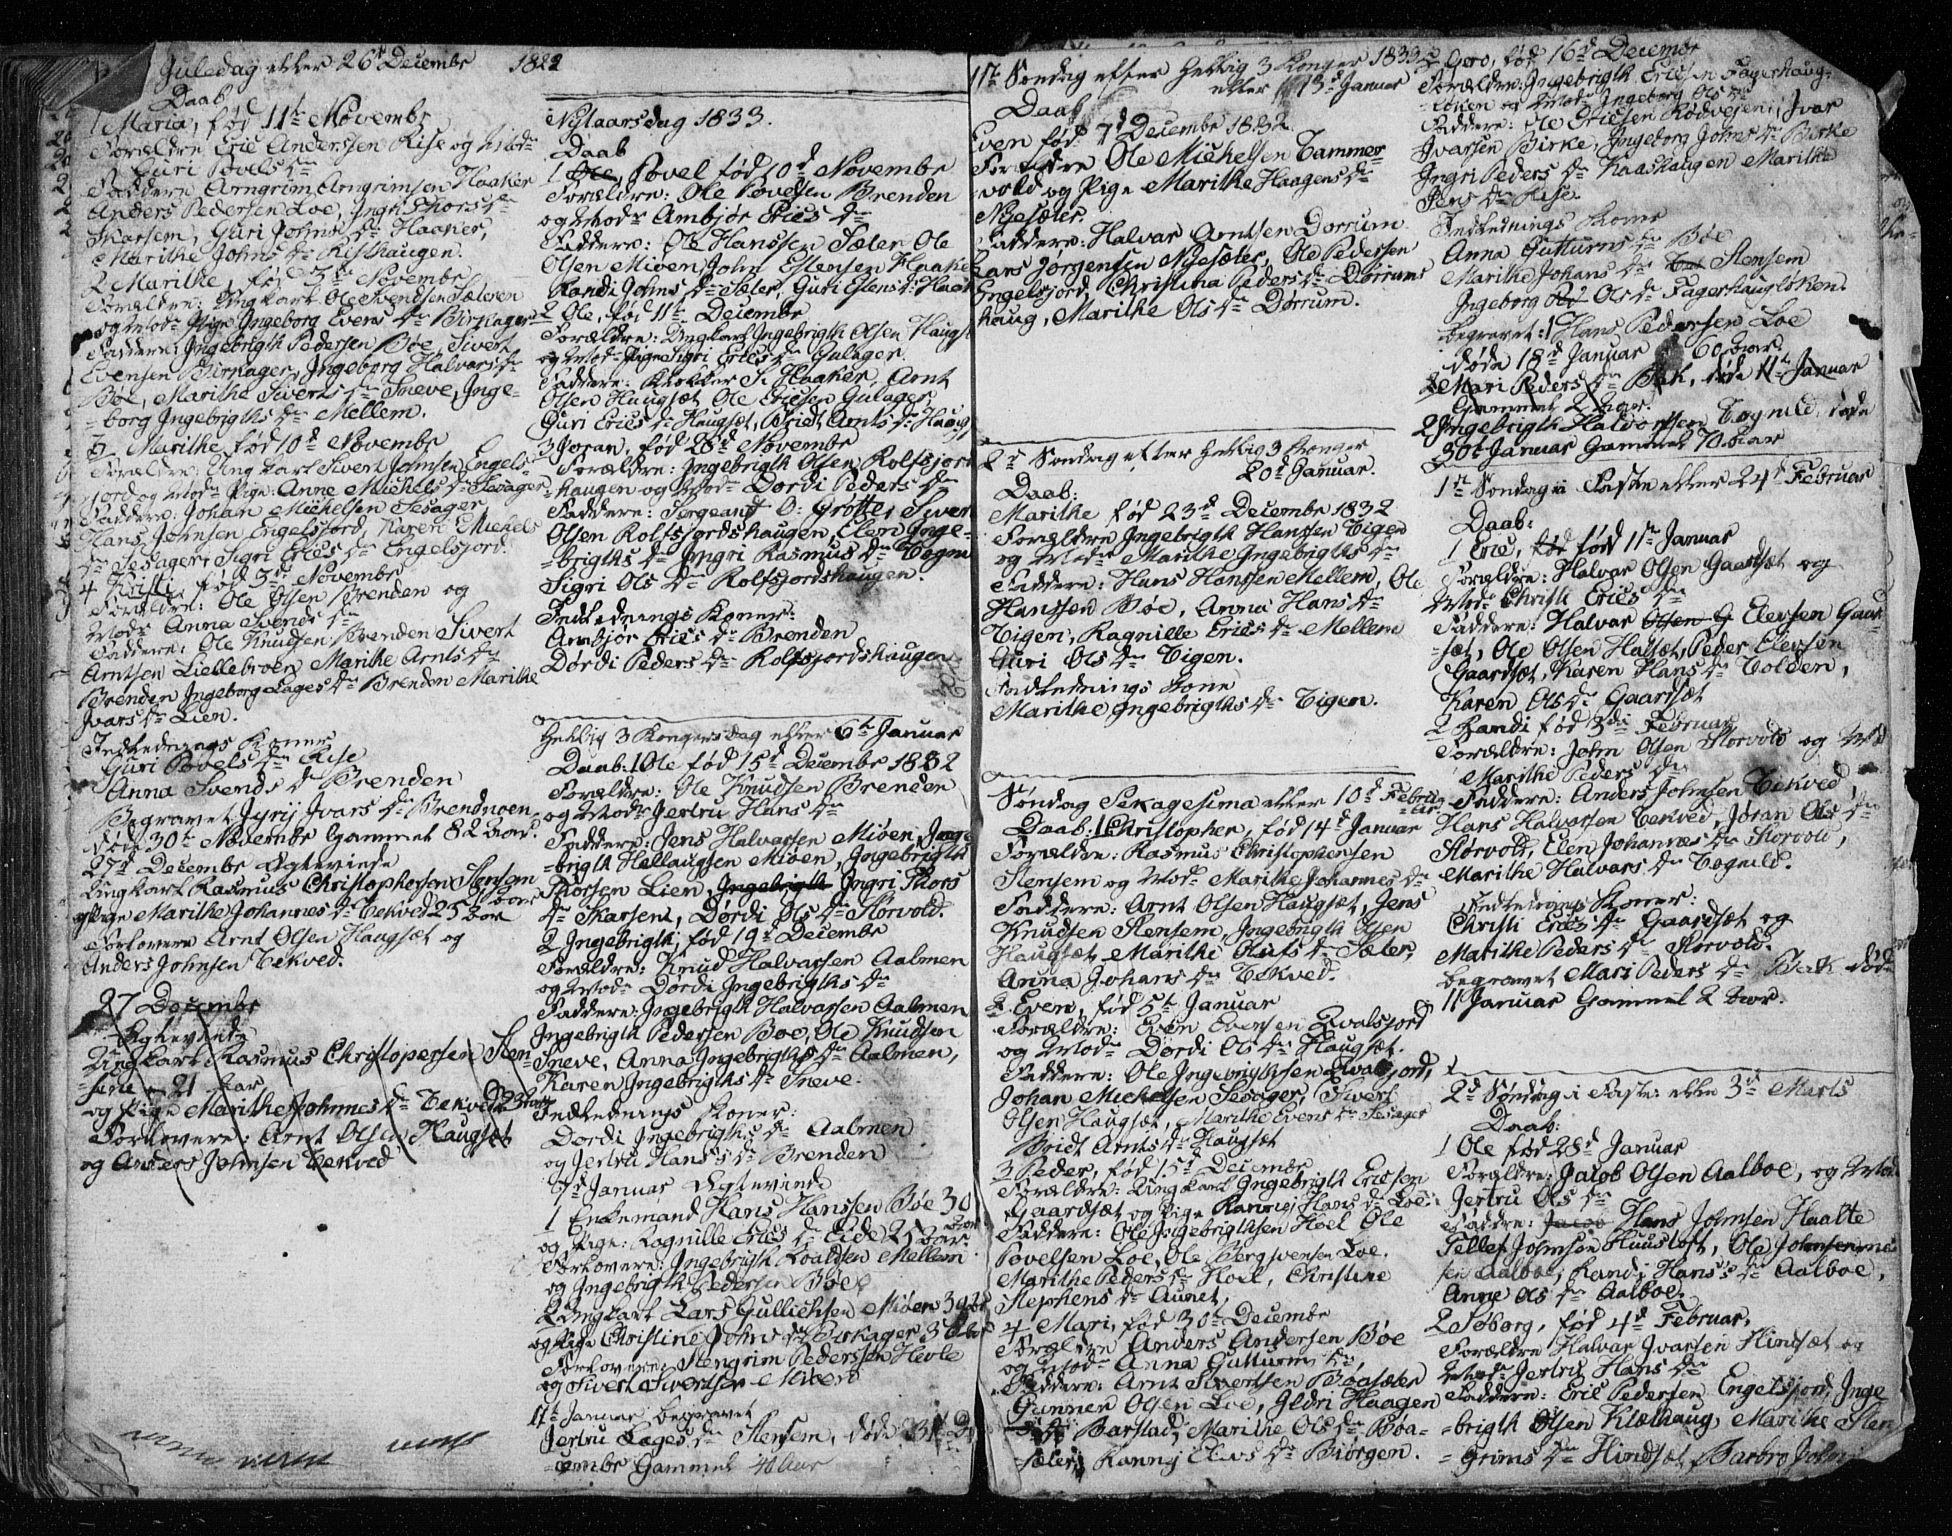 Juledag eller 26t Decembr 1832
Daab
1 Maria, fød 11te Novembr
Forældre Eric Andersen Rise og Modr
Guri Povels dr
Faddere Arngrim Arngrimsen Haaker
Anders Pedersen Loe, Ingri Thors dr
Skarsem, Guri Johns dr Haaker,
Marithe Johns dr Risthaugen.
2 Marithe, fød 3de Novembr
Forældre: Ungkarl Ole Svendsen Sæteren
og Modr Pige Ingeborg Evens dr Birkager
Faddere: Ingebrigth Pedersen Bøe, Sivert
Evensen Birkager, Ingeborg Halvars dr
Bøe, Marithe Siverts dr Sneve, Inge-
-borg Ingebrigths dr Mellem.
3 Marithe fød 10d Novembr
Forældre: Ung karl Sivert Johnsen Engels-
jord og Modr Pige: Anne Michels dr Sesager
Faddere: Johan Michelsen Sesager,
Hans Johnsen Engelsjord, Karen Michels
dr Sesager, Sigri Erics dr Engelsjord.
4 Kristi, fød 3de Novembr
Forældre: Ole Olsen Brenden og
Modr Anna Svends dr
Faddere: Ole Knudsen Brenden Sivert
Arntsen Liellebroen Marithe Arnts dr
Brenden Ingeborg Lages dr Brenden Marithe
Ivars dr Lien.
Indlednings Koner
Guri Povels dr Rise
Anna Svends dr Brenden
Begravet Jyrij Ivars dr Brendmoen
døde 30te Novembr Gammel 82 aar.
27d Decembr Egtevinde
Ungkarl Rasmus Christophersen Stensem
og Pige Marithe Johannes dr Tekved 25 aar
Forlovere Arnt Olsen Haugsæt og
Anders Johnsen Tekved.
27 Decembr
Egtevinde
Ungkarl Rasmus Christopersen Sten-
-sem 21 aar
og Pige Marithe Johnnes dr Tekved 23 aar
Forlovere: Arnt Olsen Haugsæt
og Anders Johnsen Tekved
Nytaarsdag 1833.
Daab
1 Ole, Povel fød 10d Novembr
Forældre: Ole Povelsen Brenden
og Modr Ambjør Erics dr
Faddere: Ole Hanssen Sæter Ole
Olsen Miøen, John Estensen Haaker
Randi Johns dr Sæter, Guri Estens dr Haaker
2 Ole, fød 11te Decembr
Forældre: Ungkarl Ingebrigth Olsen Haugsæt
og Modr Pige Sigri Erics dr Gulager.
Faddere: Klokker S. Haaker, Arnt
Olsen Haugsæt Ole Ericsen Gulager
Guri Erics dr Haugsæt, Bridt Arnts dr Haugs
3 Joran, fød 28d Novembr
Forældre: Ingebrigth Olsen Rolfsjord
-haugen og Modr Dordi Peders dr
Faddere: Sergeant O: Grotte, Sivert
Olsen Rolfsjordshaugen, Elen Inge-
-brigths dr Ingri Rasmus dr Togni
Sigri Ols dr Rolfsjordshaugen.
Indlednings Koner:
Ambjør Erics dr Brenden
Dørdi Peders dr Rolfsjordshaugen
Hellig 3 Kongersdag eller 6te Januar
Daab: 1 Ole fød 15d Decembr 1832
Forældre: Ole Knudsen Brenden
og Modr Jertru Hans dr
Faddere: Jens Halvarsen Miøen Inge
-brigth Hallaugsen Miøen, Ingebrigth
Thorsen Lien, Ingebrigth Ingri Thors
dr Skarsem, Dørdi Ols dr Storvold.
2 Ingebrigth, fød 19d Decembr
Forældre: Knud Halvarsen Aalmen
og Modr Dørdi Ingebrigths dr
Faddere: Ingebrigth Halvarsen Aalmen
Ingebrigth Pedersen Bøe, Ole Knudsen
Sneve, Anna Ingebrigths dr Aalmen,
Karen Ingebrigths dr Sneve.
Indlednings Koner:
Dordi Ingebrigths dr Aalmen
og Jertru Hans's dr Brenden
7d Januar Egtevinde
1 Enkemand Hans Hanssen Bøe 30
og Pige: Ragnille Erics dr Eide 25 aar
Forlovere: Ingebrigth Roaldsen Mellem
og Ingebrigth Pedersen Bøe
2 Ungkarl Lars Gullichsen Miøen 39 aar
og Pige Christine Johns dr Birkager 36 aar
Forlovere: Stengrim Pedersen Hevle
og Sivert Sivertsen Miøen
17te Januar begravet
Jertru Lages dr Stensem, døde 31te De
-cembr Gammel 40 Aar
1te Søndag efter Hellig 3 Konger 1833
eller 13d Januar
Daab
Even fød 7d Decembr 1832
Forældre Ole Michelsen Tammer-
vold og Pige Marithe Haagens dr
Nyesæter.
Faddere: Halvar Arntsen Dorrum
Lars Jørgensen Nyesæter, Ole Pedersen
Engelsjord, Christina Peders dr Dorrums
haug, Marithe Ols dr Dorrum.
2d Søndag efter Hellig 3 Konger
20te Januar.
Daab:
Marithe fød 23d Decembr 1832
Forældre Ingebrigth Hanssen Tigen
og Modr Marithe Ingebrigths dr
Faddere: Hans Hanssen Mellem, Ole
Hanssen Bøe, Anna Hans dr
Tigen, Ragnille Erics dr Mellem
Guri Ols dr Tigen.
Indlednings Kone
Marithe Ingebrigths dr Tigen.
Søndag Sexagesima eller 10d Februar
Daab: 1 Christopher, fød 14d Januar
Forældre: Rasmus Christophersen
Stensem og Modr Marithe Johannes dr
Faddere: Arnt Olsen Haugsæt, Jens
Knudsen Stensem, Ingebrigth Olsen
Haugsæt Marithe Olufs dr Sæter,
Anna Johans dr Tekved.
2 Even, fød 5te Januar
Forældre: Even Evensen Hvalsjord
og Modr Dørdi Ols dr Haugsæt.
Faddere: Ole Ingebrigthsen Hvalsjord,
Johan Michelsen Sesager, Sivert
Olsen Haugsæt, Marithe Evens dr Sesager
Bridt Arnts dr Haugsæt
3 Peder, fød 15d Decembr
Forældre: Ungkarl Ingebrigth Ericsen
Gaardsæt og Pige Karen Hans dr Loe
Faddere: Ole Ingebrigthsen Hoel Ole
Povelsen Loe, Ole Bergsvensen Loe.
Marithe Peders dr Hoel, Christine
Stephens dr Aunet.
4 Mari, fød 30te Decembr
Forældre Anders Andersen Bøe
og Modr Anna Gutturms dr,
Faddere: Arnt Sivertsen Bøasæter
Gunner Olsen Loe, Ildri Haagen
dr Barstad, Marithe Ols dr Bøa-
-sæter, Ranni Elevs dr Biørgen.
5 Goro, fød 16d Decembr
Forældre: Ingebrigth Ericsen Fagerhaug-
-løken og Modr Ingeborg Ols dr
Faddere: Ole Ericsen Rødvesen, Ivar
Ivarsen Birke, Ingeborg Johns dr Birke
Ingri Peders dr Kaashaugen Marithe
Jens dr Rise.
Indlednings Koner
Anna Gutturms dr Bøe
Marithe Johans dr Stensem
Ingeborg Ols dr Fagerhaugløken.
begravet: 1 Hans Pedersen Loe
døde 18d Januar 60 aar
2 Mari Peders dr Bak, døde 11te Januar
Gammel 2 aar.
2 Ingebrigth Halvorsen Tognild, døde
30te Januar Gammel 70 aar
1te Søndag i Faste eller 24d Februar
Daab:
1 Eric, fød 11te Januar
Forældre: Halvar Olsen Gaardsæt og
Modr Christi Erics dr
Faddere: Halvar Olsen G Elevsen Gaar-
-sæt, Ole Olsen Halsæt, Peder Elevsen
Gaardsæt, Karen Hans dr Volden,
Karen Ols dr Gaardsæt
2 Randi fød 3di Februar
Forældre: John Olsen Storvold og Mod
Marithe Peders dr
Faddere: Anders Johnsen Tekved,
Hans Halvarsen Tekved, Jøran Ols dr
Storvold, Elen Johannes dr Storvold,
Marithe Halvars dr Tognild.
Indlednings Koner:
Christi Erics dr Gaardsæt og
Marithe Peders dr Storvold.
begravet Mari Peders dr Bak døde
11 Januar Gammel 2 aar.
2d Søndag i Faste eller 3d Marts
Daab:
1 Ole fød 28d Januar
Forældre: Jacob Olsen Aalboe, og Modr
Jertru Ols dr
Faddre: Jacob Hans Johnsen Haalte
Tellef Johnsøn Huusloft, Ole Johnsen
Aalboe, Randi Hans's dr Aalboe,
Anne Ols dr Aalboe.
2 Soborg, fød 4d Februar,
Forældre Halvar Ivarsen Hindsæt og
Modr Jertru Hans dr
Faddere: Eric Pedersen Engelsjord, Inge
-brigth Olsen Klæthaug, Marithe Sten
-grims dr Hindsæt, Barbro Johns